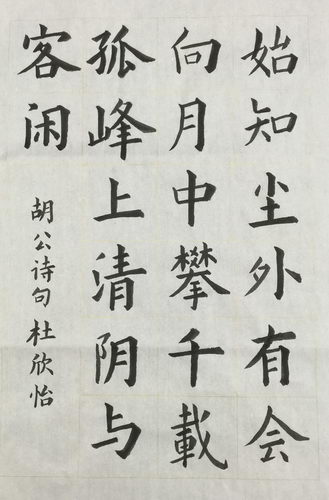 始知尘外有会
向月中攀千載
孤峰上清阴与
客闲
胡公诗句杜欣怡